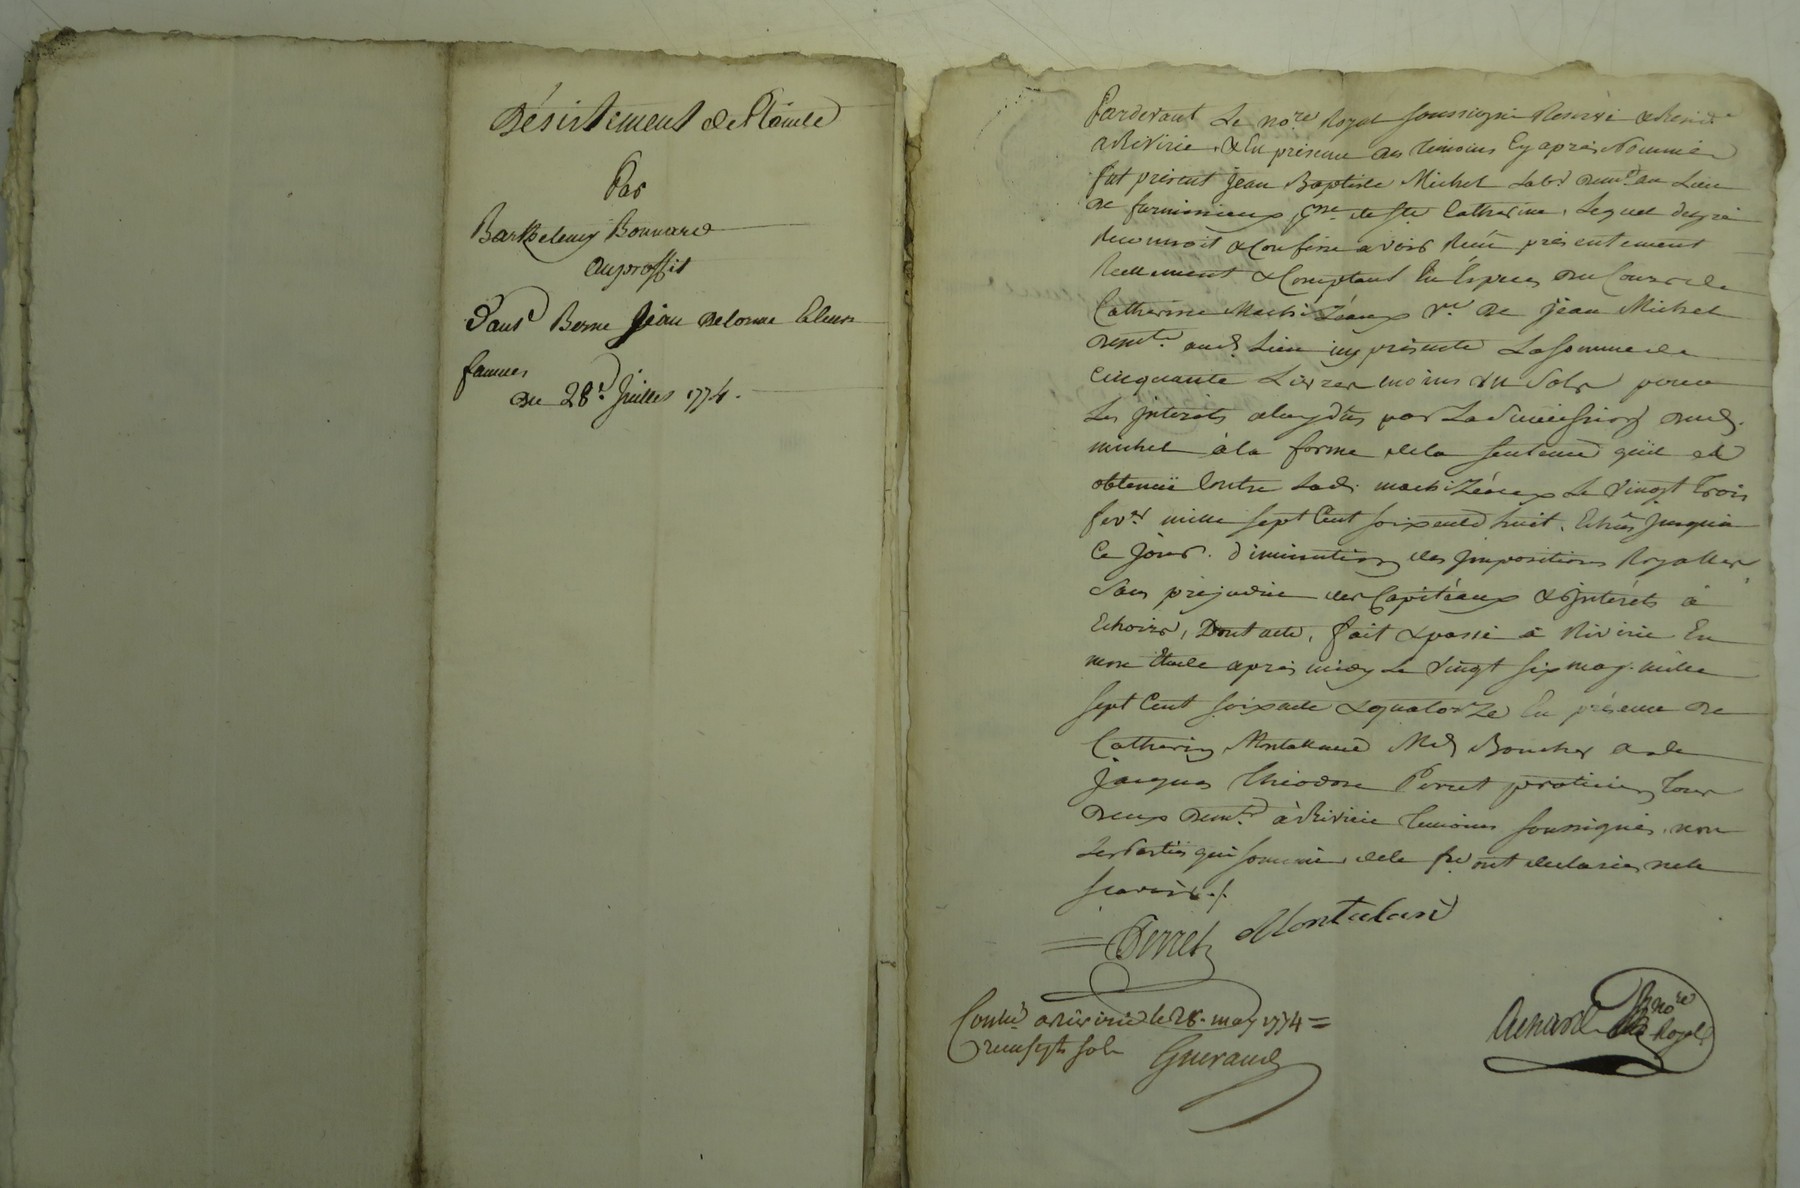 Désistement de Plainte
Par
Barthelemy Bonnard
au proffit
D'ant Berne Jean Delorme & leurs
femmes
Du 28e. Juillet 1774.
Pardevant Le nore. Royal soussigné Reservé & Resid.
à Riverie, & En présence des témoins Cy après Nommés
fut présent Jean Baptiste Michel Labr. demt. au Lieu
de furmieux psse. de Ste Catherine, Lequel de gré
Reconnoit & Confesse avoir Reçu présentement
Reellement & Comptant En Espèces du Cours de
Catherine Ve. de Jean Michel
demt. aud. Lieu icy présente La somme de
Cinquante Livres moins un Sols pour
Les interêts adjugés par La d. aud.
michel à la forme de la sentence qu'il a
obtenüe Contre Lad. Le vingt trois
fevr. mille sept Cent soixante huit. Echus Jusqu'à
Ce Jour. diminution des Impositions Royalles,
Sans préjudice des Capiteaux & Interêts à
Echoirs, Dont acte, fait & passé à Riverie En
mon Etude après midy Le vingt six may. mille
sept Cent soixante & quatorze En présence de
Catherin Montalland Md. Boucher & de
Jacques Théodore Perret praticien tous
deux demt. à Riverie témoins soussignés, non
Les parties qui sommées de le fre. ont declarées ne le
scavoir./.
Perret Montaland
Contlé. à Riverie le 28. may 1774 =
Reçu sept sols Gueraud
Renard nore
Royal